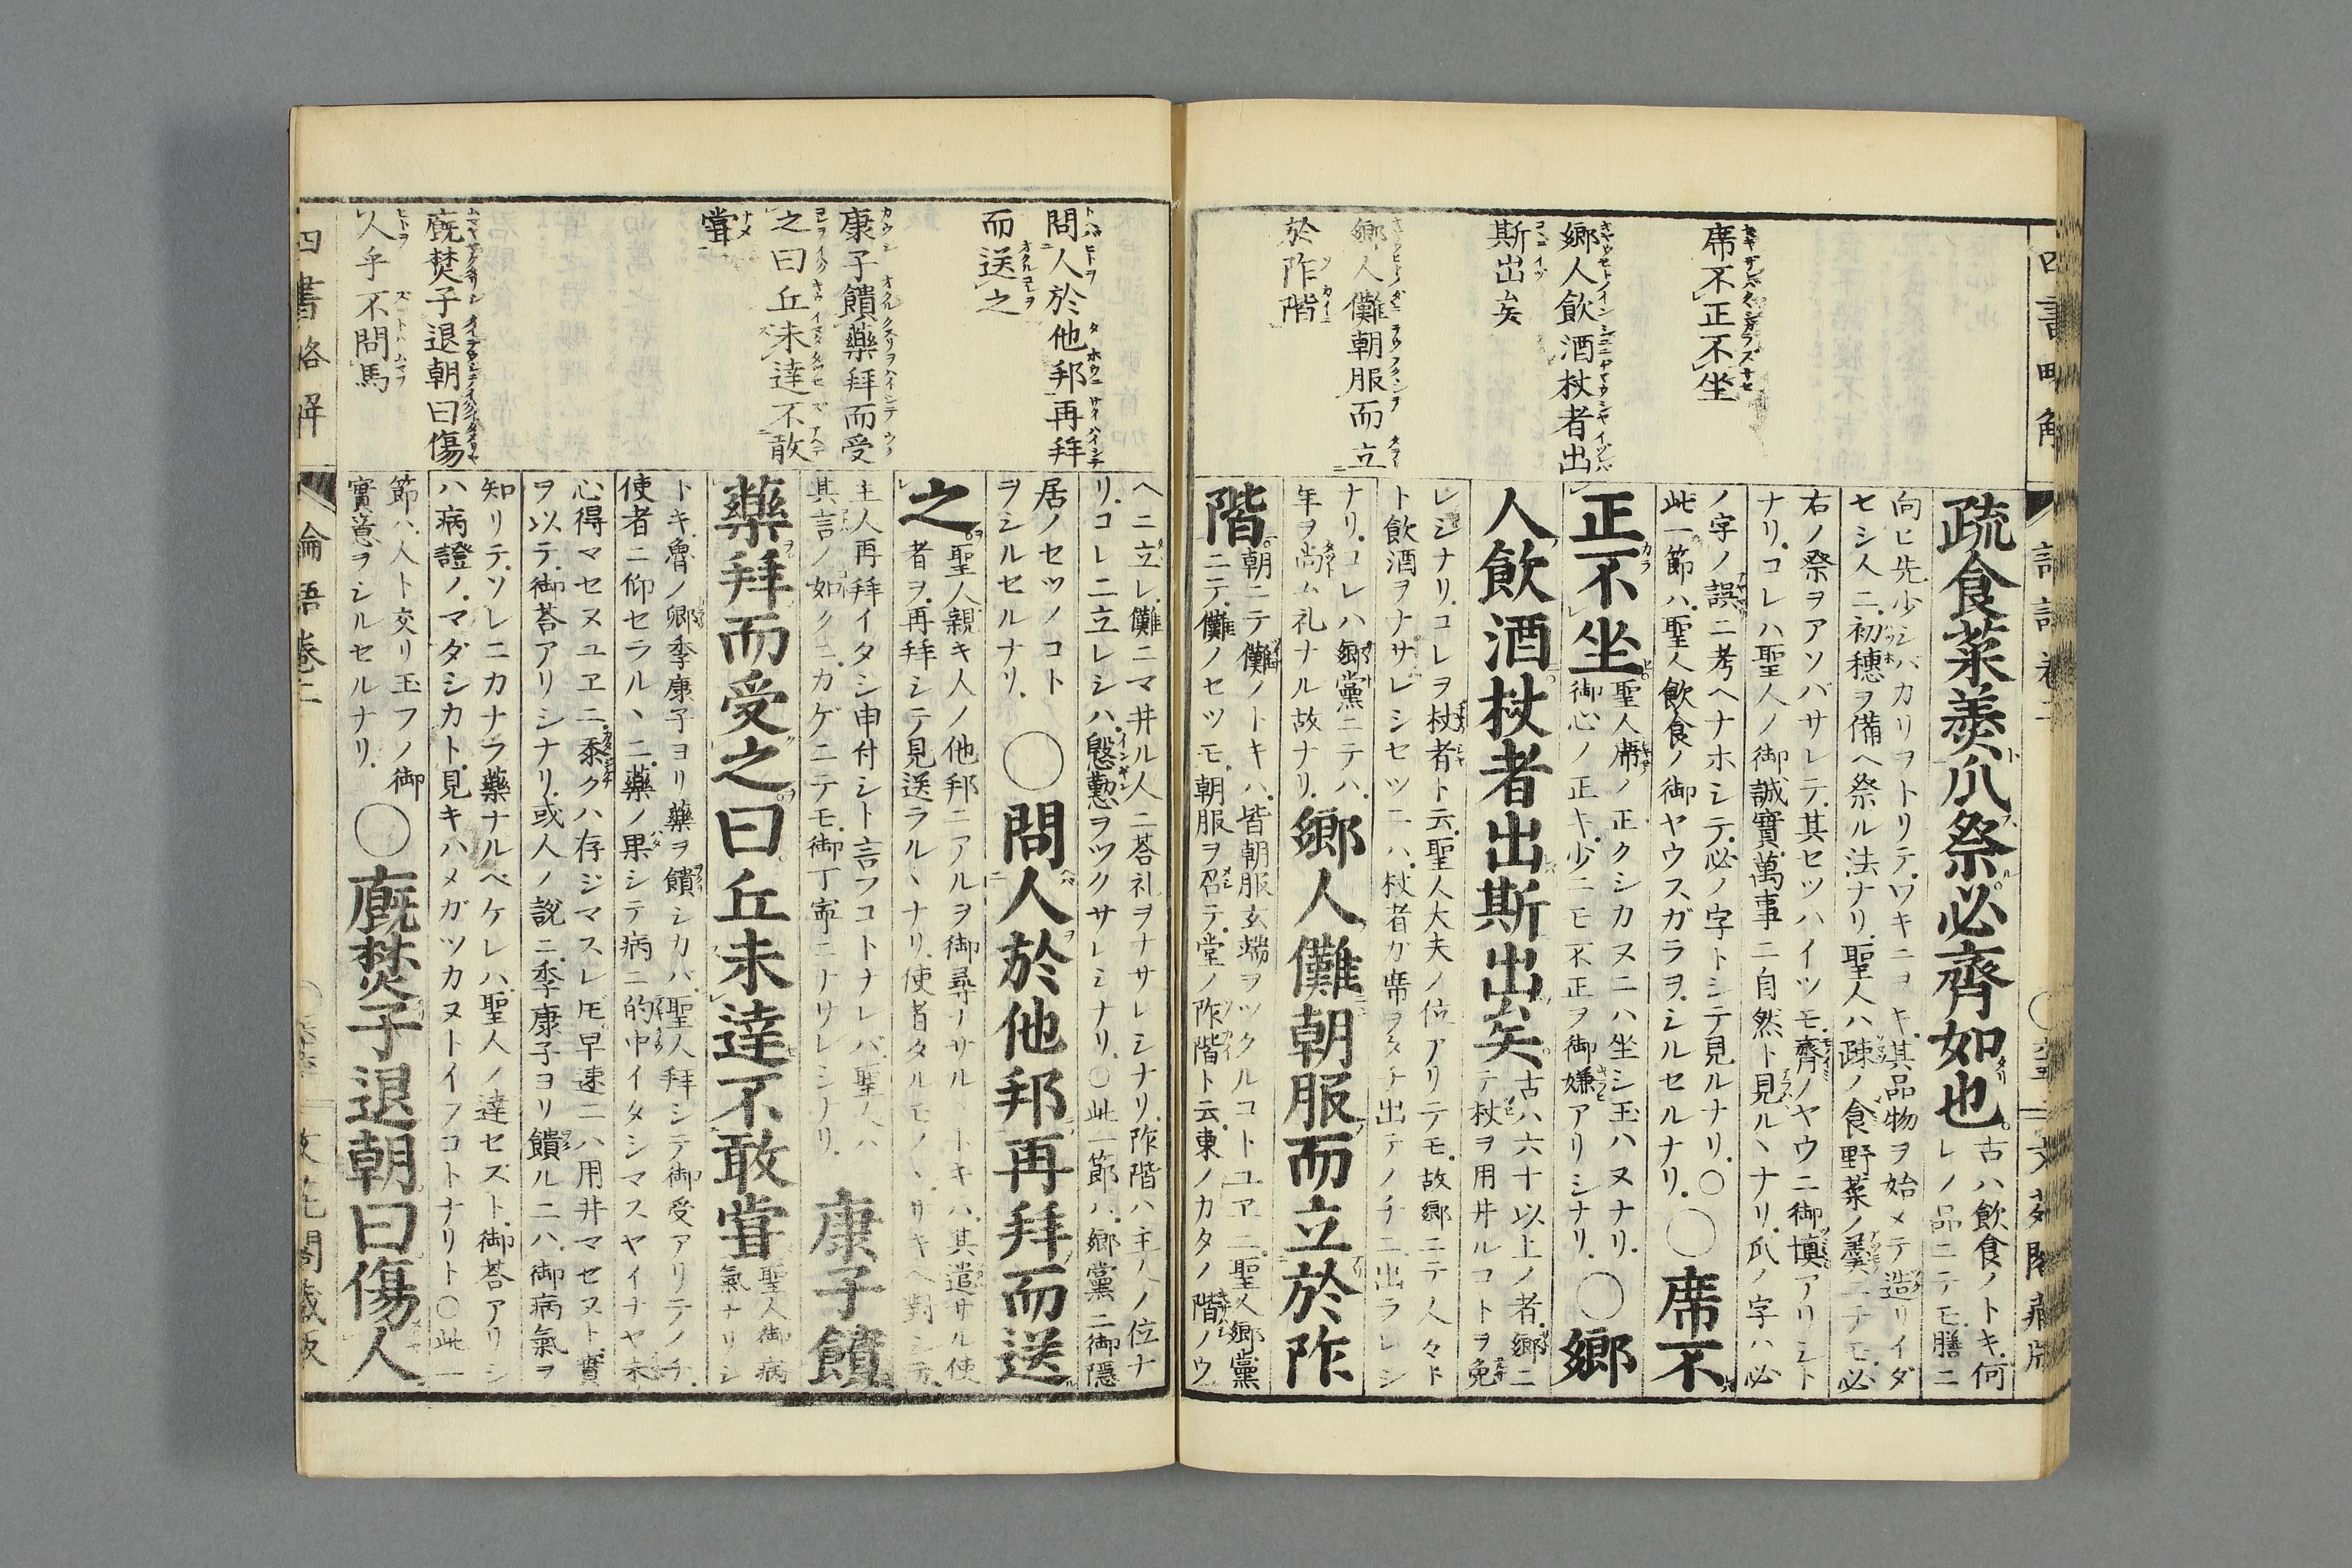 席不正不坐
郷人飲酒杖者出
斯出矣
郷人儺朝服而立
於阼階
疏食菜羹瓜祭必齊如也
古ハ飲食ノトキ何
レノ品ニテモ膳ニ
向ヒ先少シバカリヲトリテワキニヲキ其品物ヲ始メテ造リイダ
セシ人ニ初穗ヲ備ヘ祭ル法ナリ聖人ハ疎ノ食野菜ノ羹ニテモ必
右ノ祭ヲアソバサレテ其セツハイツモ齊ノヤウニ御愼アリシト
ナリコレハ聖人ノ御誠實萬事ニ自然ト見ルヽナリ瓜ノ字ハ必
ノ字ノ誤ニ考ヘナホシテ必ノ字トシテ見ルナリ○
此一節ハ聖人飲食ノ御ヤウスガラヲシルセルナリ
○席不
正不坐
聖人席ノ正クシカヌニハ坐シ玉ハヌナリ
御心ノ正キ少ニモ不正ヲ御嫌アリシナリ
○郷
人飲酒杖者出斯出矣
古ハ六十以上ノ者郷ニ
テ杖ヲ用井ルコトヲ免
レシナリコレヲ杖者ト云聖人大夫ノ位アリテモ故郷ニテ人々ト
ト飲酒ヲナサレシセツニハ杖者ガ席ヲタチ出テノチニ出ラレシ
ナリコレハ郷黨ニテハ
年ヲ尚ム礼ナル故ナリ
郷人儺朝服而立於阼
階
朝ニテ儺ノトキハ皆朝服玄端ヲツクルコトユヱニ聖人郷黨
ニテ儺ノセツモ朝服ヲ召テ堂ノ阼階ト云東ノカタノ階ノウ
問人於他邦再拜
而送之
康子饋藥拜而受
之曰丘未達不敢
嘗
廐焚子退朝曰傷
人乎不問馬
ヘニ立レ儺ニマ井ル人ニ荅礼ヲナサレシナリ阼階ハ主人ノ位ナ
リコレニ立レシハ慇懃ヲツクサレシナリ○此一節ハ郷黨ニ御隱
居ノセツノコト
ヲシルセルナリ
○問人於他邦再拜而送
之
聖人親キ人ノ他邦ニアルヲ御尋ナサルヽトキハ其遣サル使
者ヲ再拜シテ見送ラルヽナリ使者タルモノ
主人再拜イタシ申付シト言フコトナレバ聖人ハ
其言ノ如クニカゲニテモ御丁寧ニナサレシナリ
康子饋
藥拜而受之曰丘未達不敢嘗
聖人御病
氣ナリシ
トキ魯ノ卿季康子ヨリ藥ヲ饋シカバ聖人拜シテ御受アリテノチ
使者ニ仰セラルヽニ藥ノ果シテ病ニ的中イタシマスヤイナヤ未
心得マセヌユヱニ忝クハ存ジマスレ𪜈早速ニハ用井マセヌト實
ヲ以テ御荅アリシナリ或人ノ説ニ季康子ヨリ饋ルニハ御病氣ヲ
知リテソレニカナラ藥ナルベケレハ聖人ノ達セズト御荅アリシ
ハ病證ノマダシカト見キハメガツカヌトイフコトナリト○此一
節ハ人ト交リ玉フノ御
實意ヲシルセルナリ
○廐焚子退朝曰傷人
四書略解
論語卷二